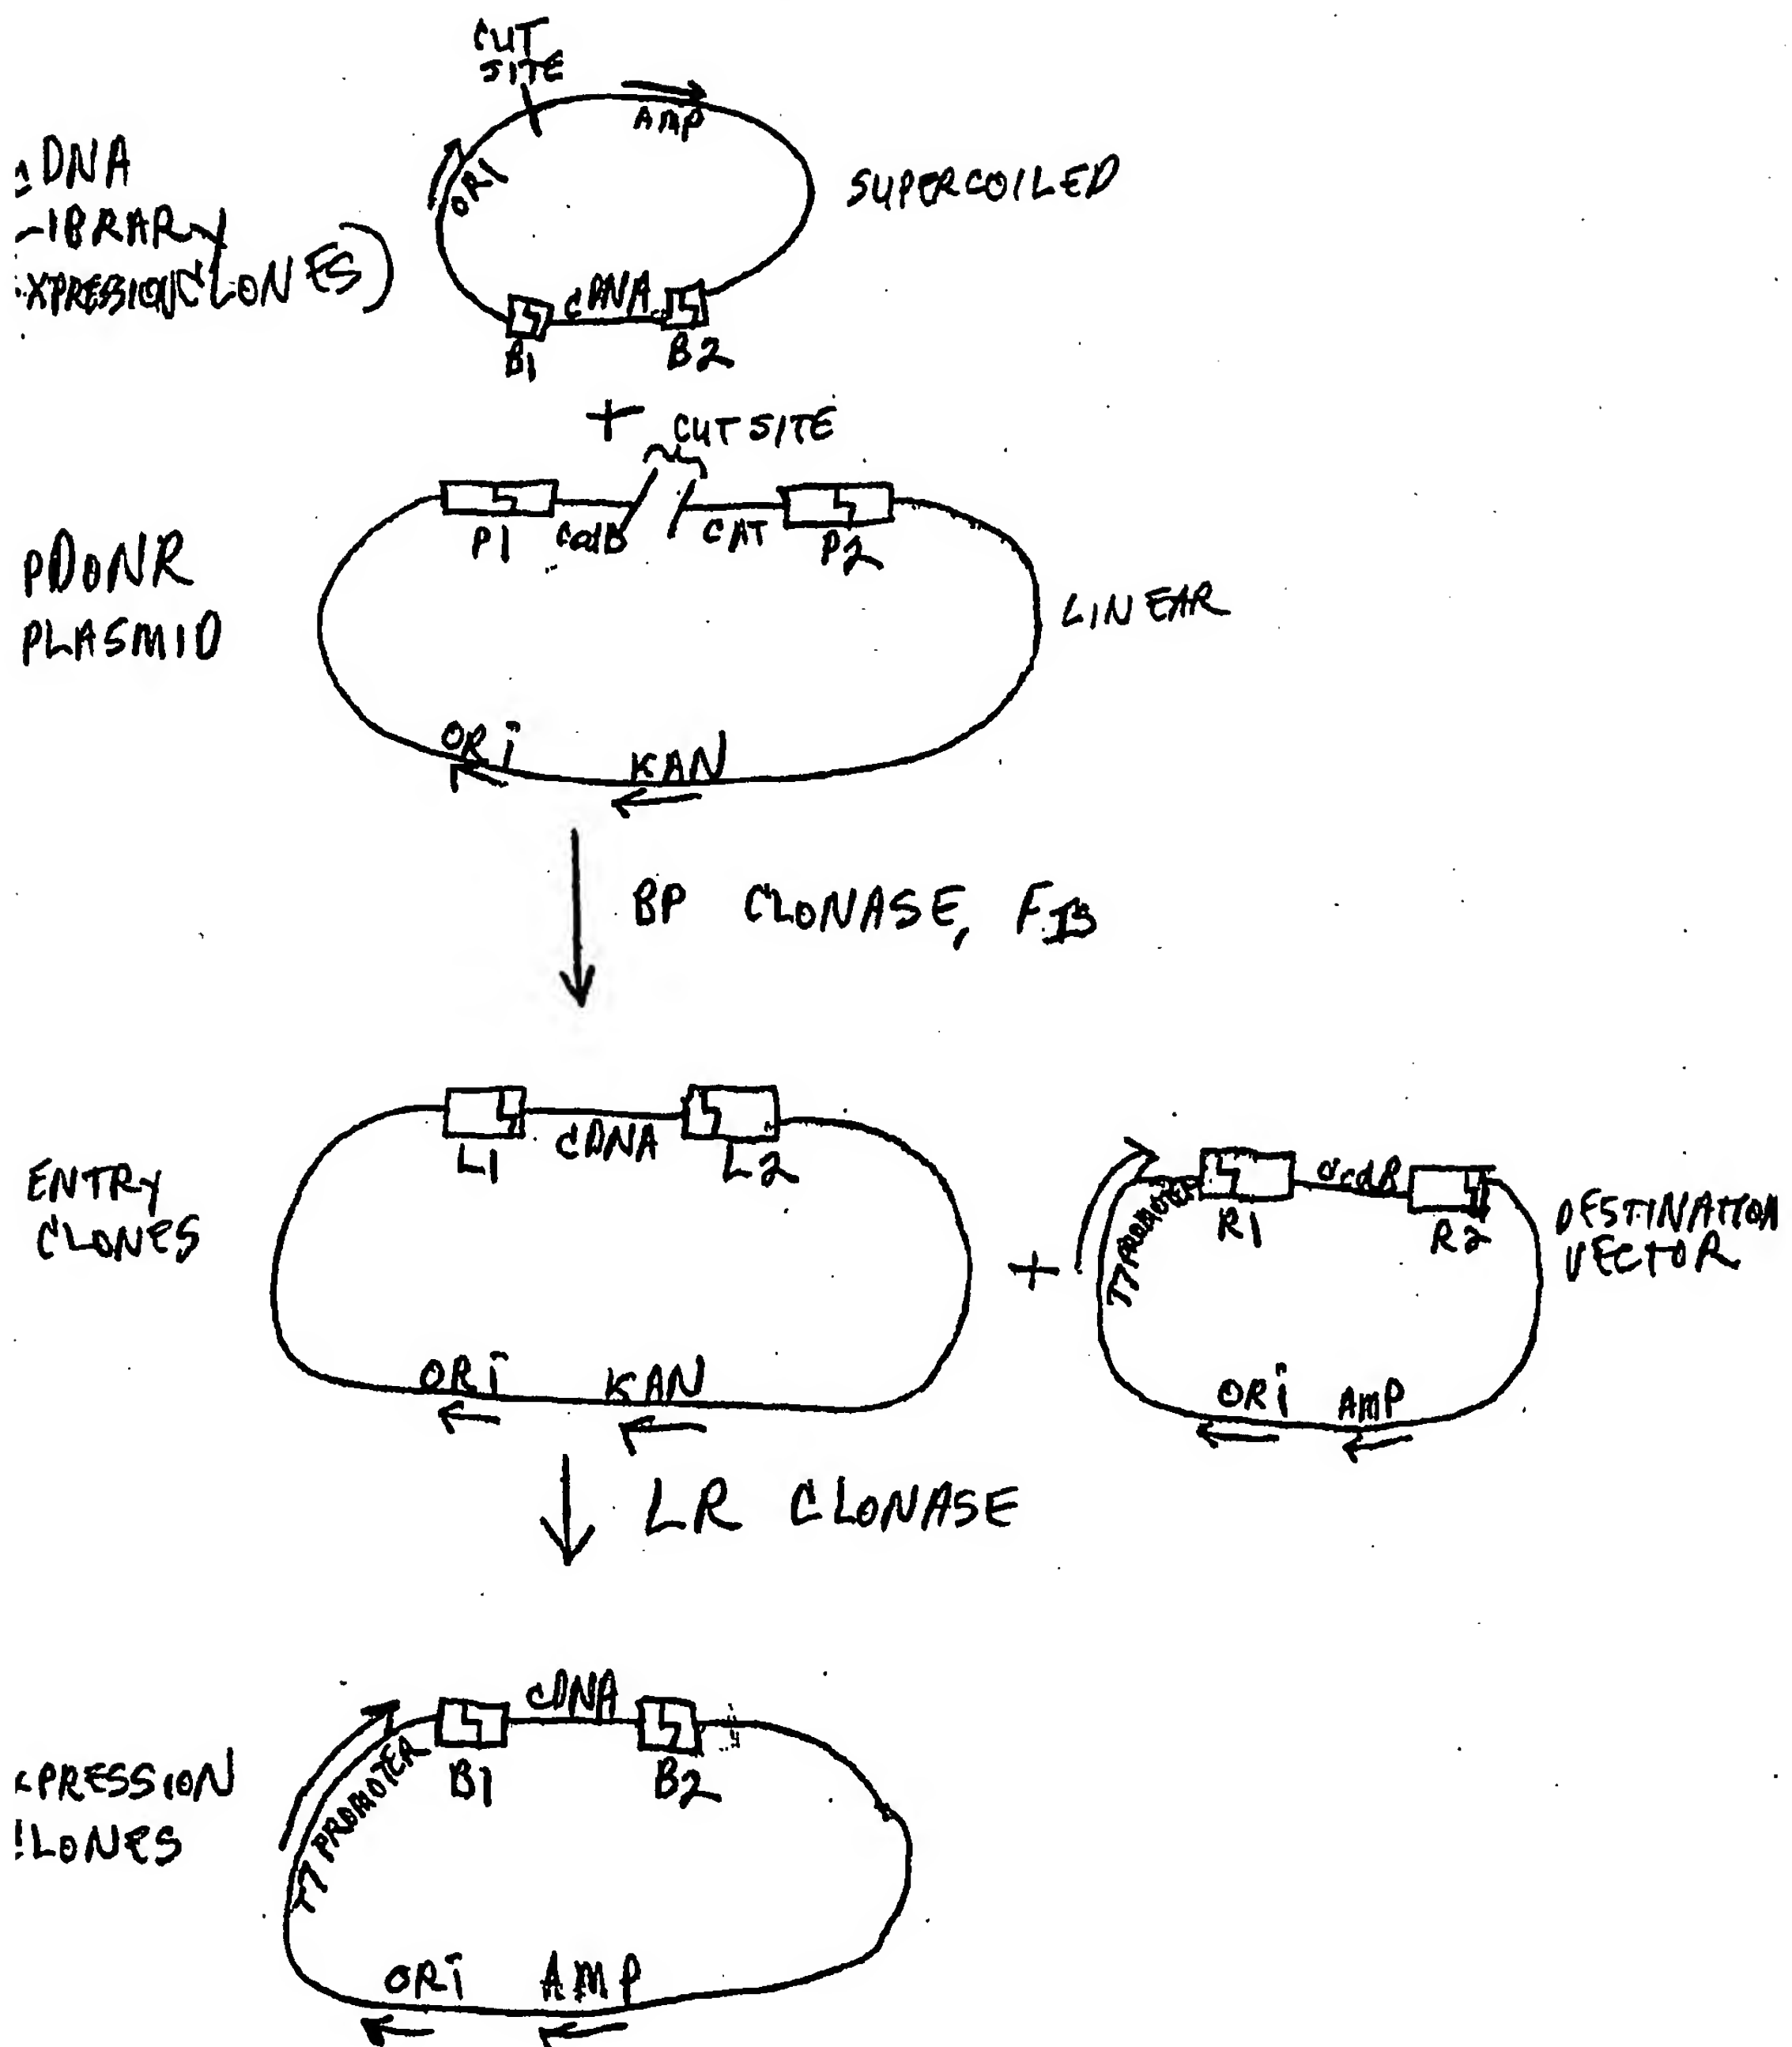 CUT
SITE
AMP
ORI
DNA
IBRARY
XPRESSION CLONES)
SUPERCOILED
cDNA
B1
B2
+
CUT SITE
P1
CAT
P2
pDONR
PLASMID
LINEAR
ORi
KAN
BP CLONASE, FIS
L1
cDNA
L2
ENTRY
CLONES
ORi
KAN
+
T7 PROMOTER
R1
ccdB
R2
DESTINATION
VECTOR
ORi
AMP
LR CLONASE
cDNA
B1
B2
T7 PROMOTER
PRESSION
LONES
ORi
AMP